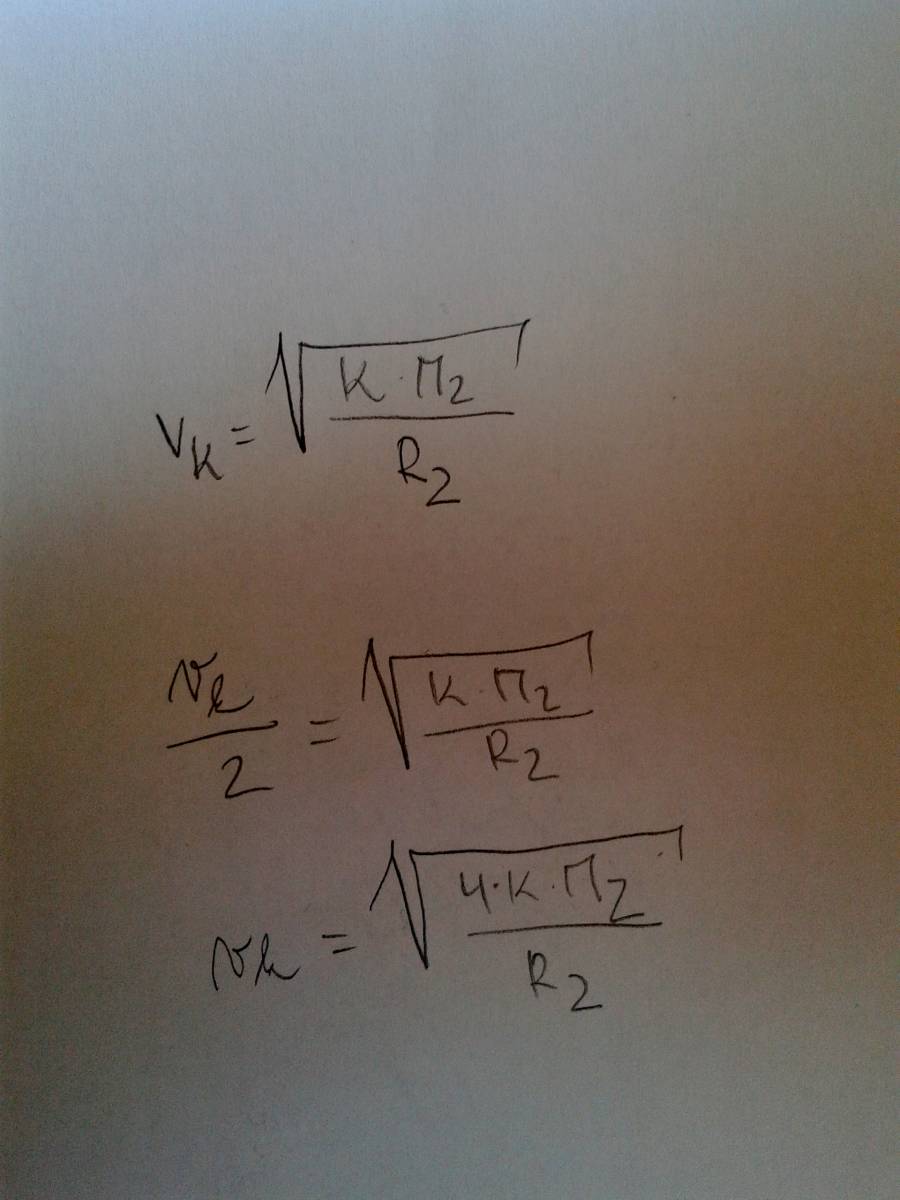 V_K = √(K · П_2 / R_2)
v_k / 2 = √(K · П_2 / R_2)
v_k = √(4 · K · П_2 / R_2)